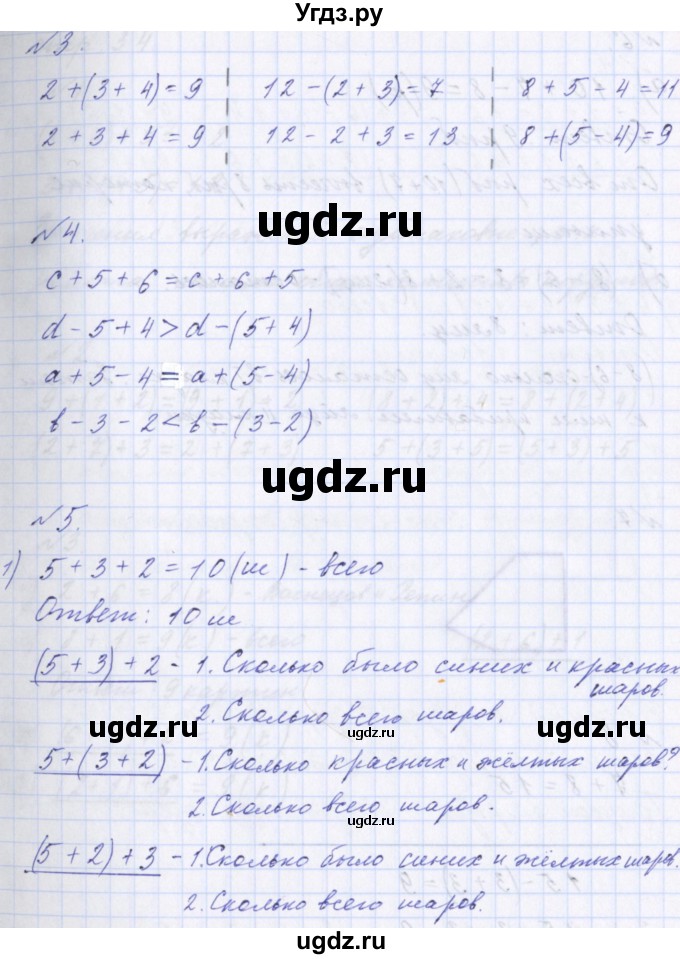 Угдз.ру
№3.
2+(3+4)=9 12-(2+3)=7 8+5-4=11
2+3+4=9 12-2+3=13 8+(5-4)=9
ugdz.ru ugdz.ru
№4.
c+5+6=c+6+5
d-5+4>d-(5+4)
a+5-4=a+(5-4)
b-3-2<b-(3-2)
ugdz.ru
№5.
1) 5+3+2=10(ш)-всего
Ответ: 10 ш
(5+3)+2-1. Сколько было синих и красных
шаров.
2. Сколько всего шаров.
ugdz.ru ugdz.ru
5+(3+2)-1. Сколько красных и жёлтых шаров?
2. Сколько всего шаров.
ugdz.ru
(5+2)+3-1. Сколько было синих и жёлтых шаров.
2. Сколько всего шаров.
ugdz.ru